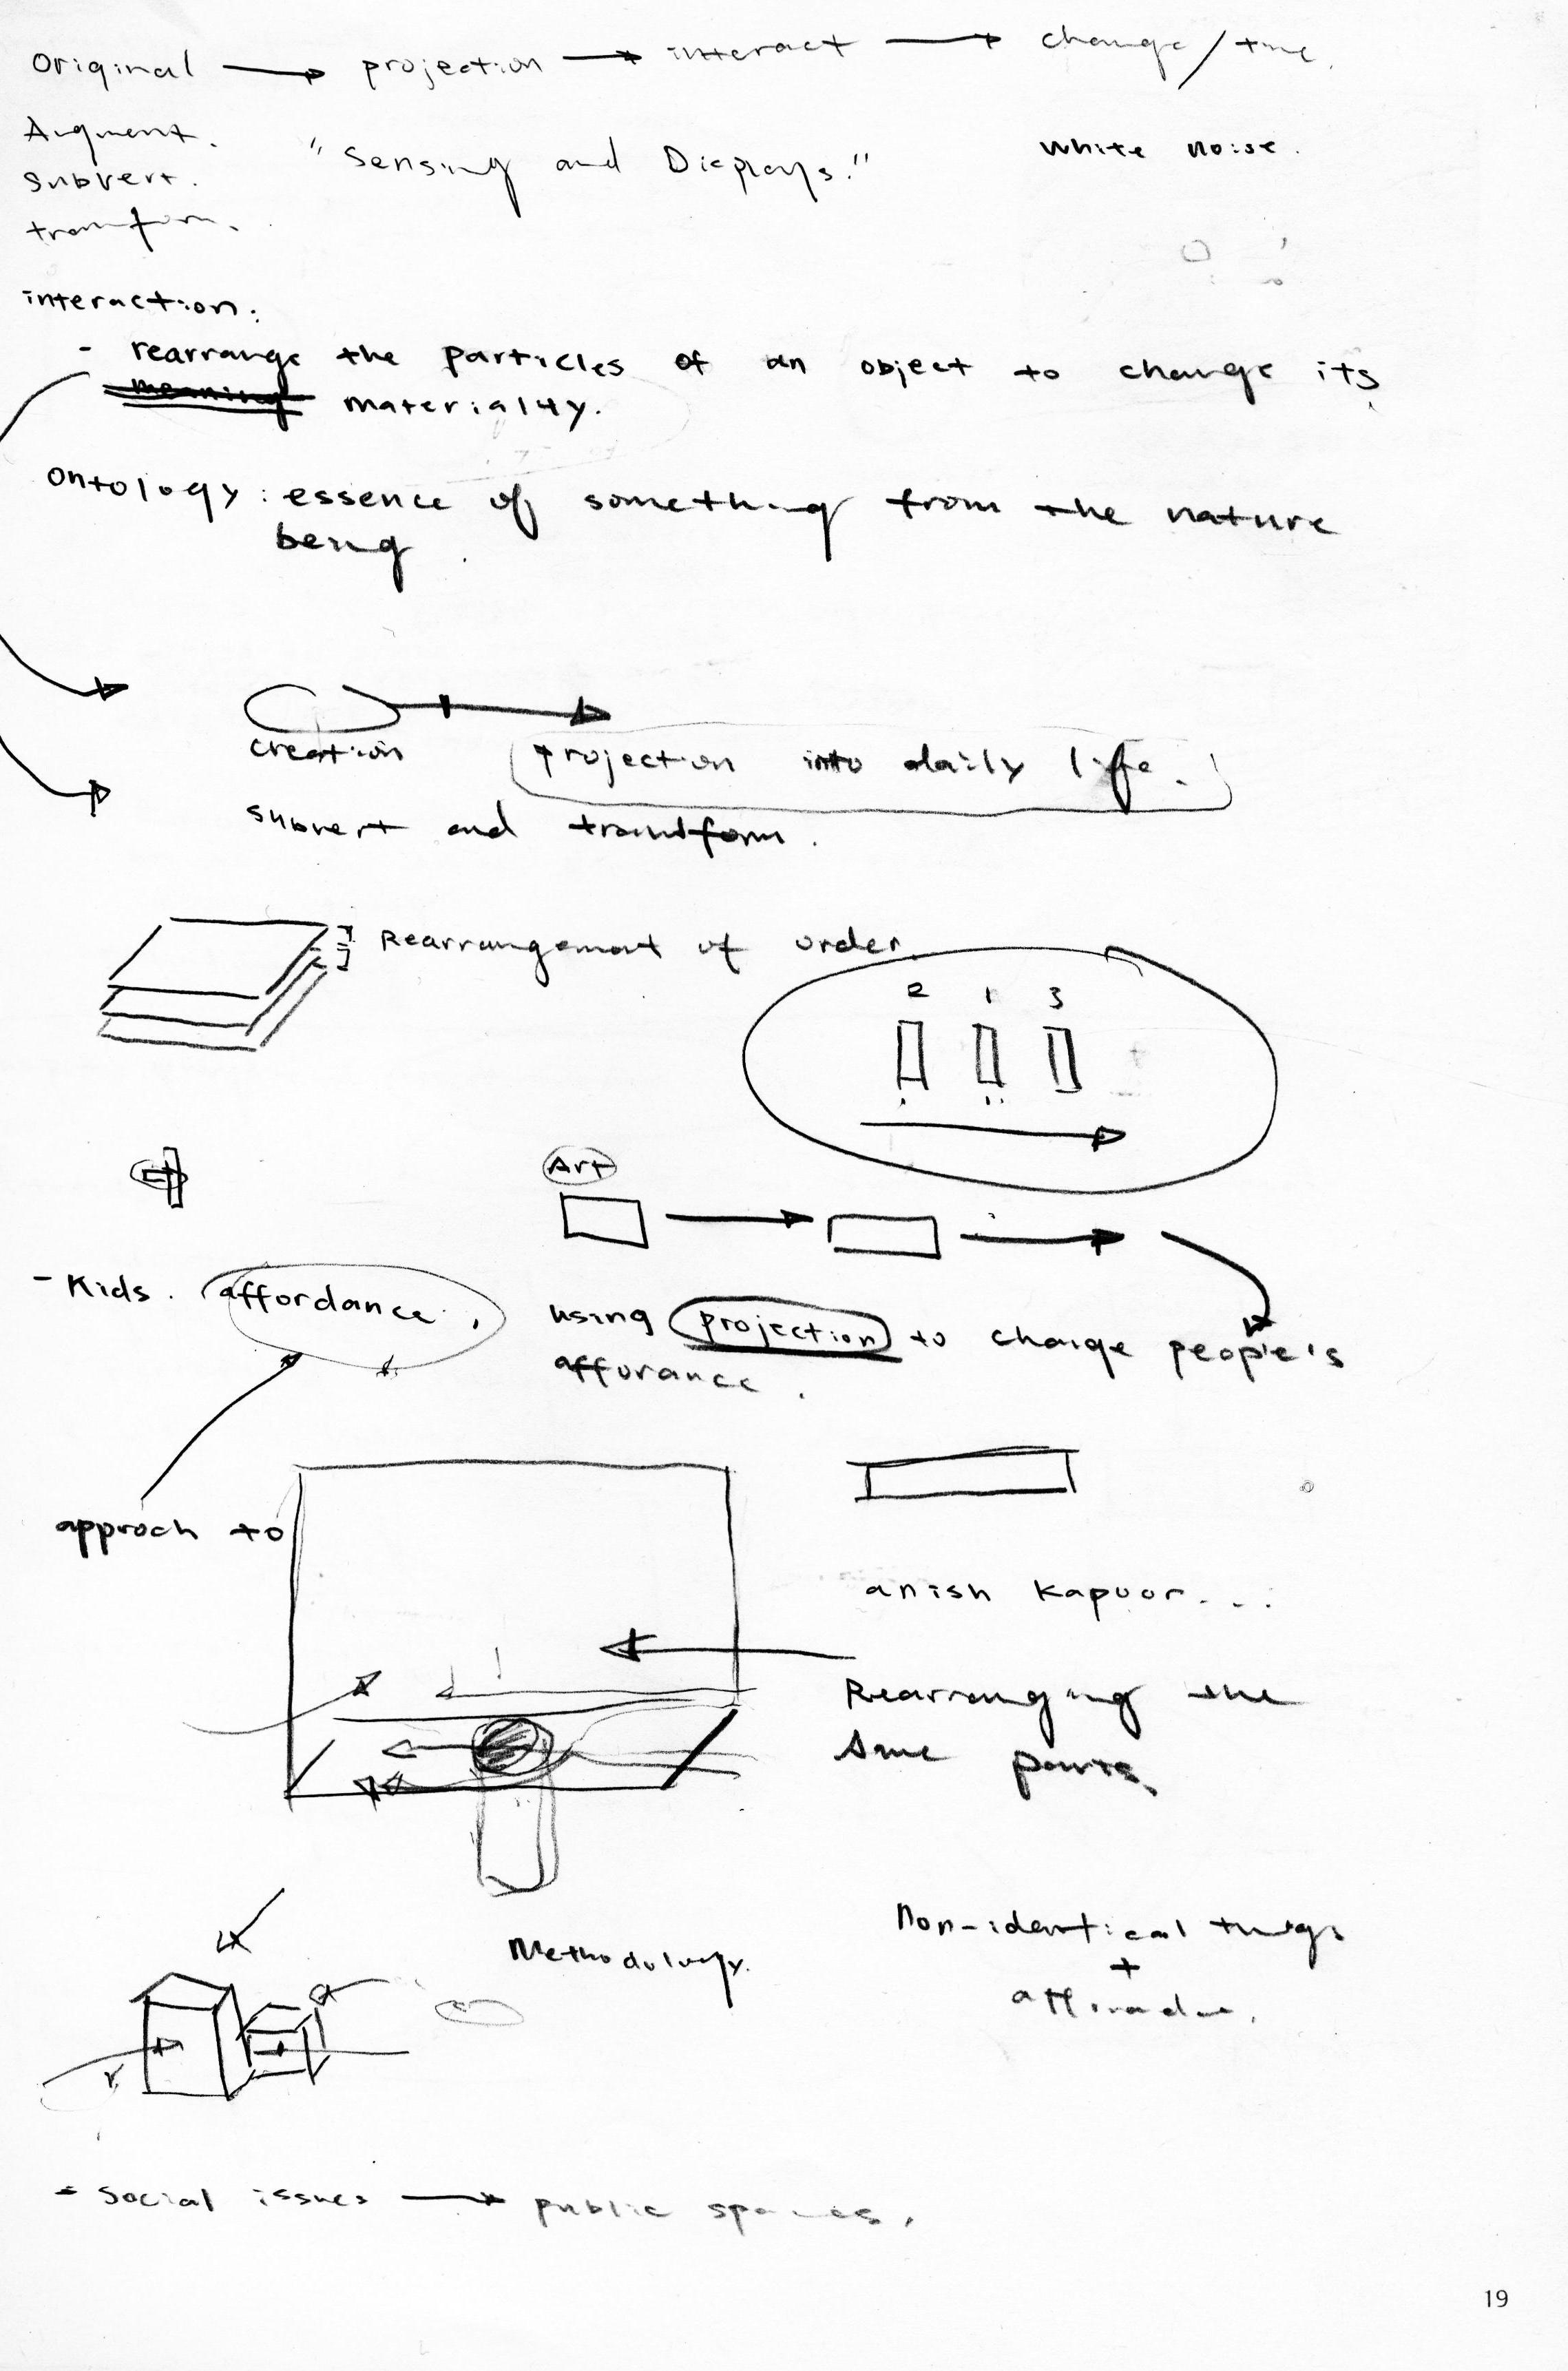 Original → projection → interact → change / time.
Augment.
"Sensing and Displays."
white noise.
Subvert.
transform.
interaction:
- rearrange the particles of an object to change its
meaning materiality.
Ontology: essence of something from the nature
being.
creation
projection into daily life.
subvert and transform.
Rearrangement of order.
2 1 3
Art
- Kids. affordance.
using projection to change people's
afforance.
approch to
anish kapoor...
Rearranging the
same parts.
Methodology.
Non-identical things
+
- Social issues → public spaces.
19